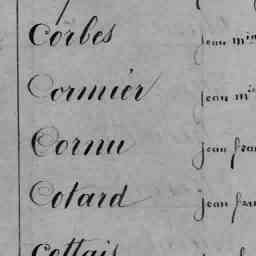 Corbes jean
Cormiér jean
Cornu jean
Cotard jean
Cottais